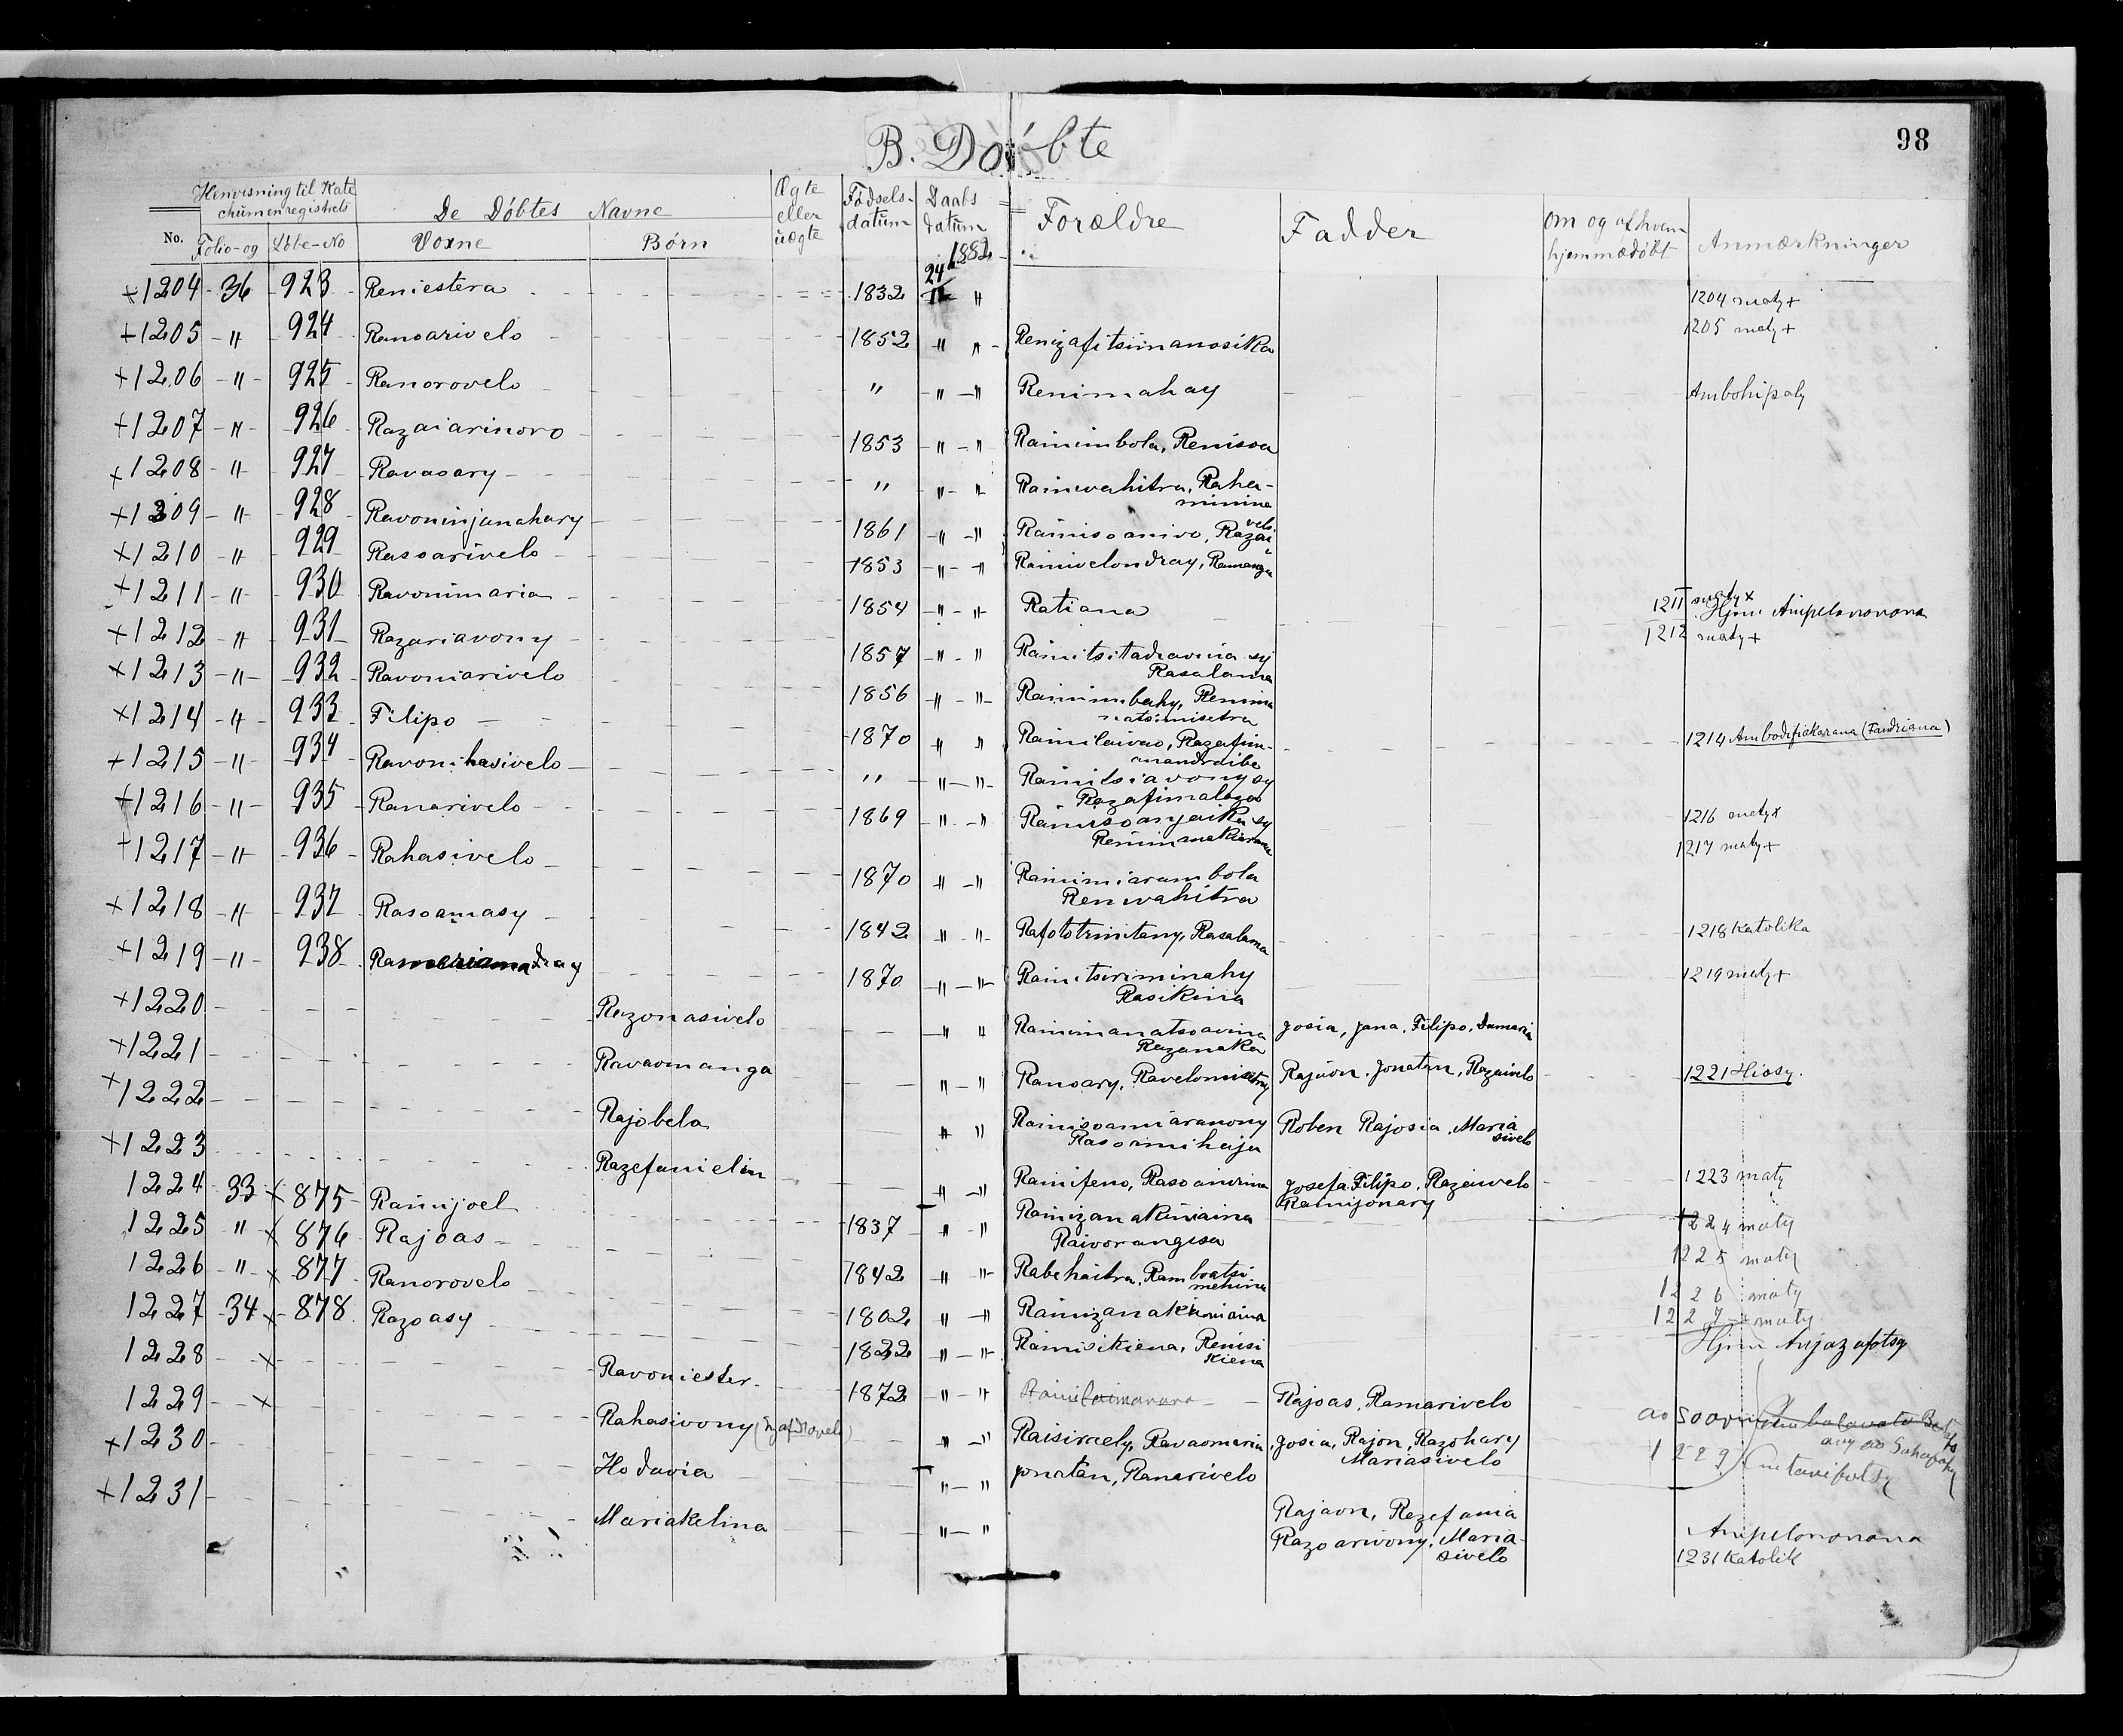 98
B. Döbte
No.
Henvisning til Kate
chumenregistrets
Folio- og Löbe-No
De Döbtes Navne
Voxne Börn
Ægte
eller
uægte
Födsels-
datum
Daabs
datum
1882
Forældre
Fadder
Om og af hvem
hjemmedöbt
Anmærkninger
+1204 36 923 Reniestera 1832 24/12 " 1204 maty +
+1205 " 924 Ranoarivelo 1852 " " Renizafitsimanosika 1205 maty +
+1206 " 925 Ranorovelo " " " Renimahay Ambohipoly
+1207 " 926 Razaiarinoro 1853 " " Rainimbola, Renisoa
+1208 " 927 Ravaoary " " " Rainivahitra, Raha-
minina
+1209 " 928 Ravoninjanahary 1861 " " Rainisoanivo, Razai
velo
+1210 " 929 Rasoarivelo 1853 " " Rainivelondray, Ramanga
+1211 " 930 Ravonimaria 1854 " " Ratiana 1211 maty x
Hjm Ampelanonana
+1212 " 931 Razariavony 1857 " " Rainitsitadiavina sy
Rasalama
1212 maty +
+1213 " 932 Ravoniarivelo 1856 " " Rainimbahy, Renima
natsimisetra
+1214 " 933 Filipo 1870 " " Rainilaivao, Razafim-
anandraibe
1214 Ambodifiakarana (Fandriana)
+1215 " 934 Ravonihasivelo " " " Rainitsiavony sy
Razafimalaza
+1216 " 935 Ranarivelo 1869 " " Rainisoanjaika sy
1216 maty x
+1217 " 936 Rahasivelo 1870 " " Rainimiarambola
Renivahitra
1217 maty +
+1218 " 937 Rasoamasy 1842 " " Rafototrinitany, Rasalama 1218 Katolika
+1219 " 938 Ramariamadray 1870 " " Rainitsiriminahy
Rasikina
1219 maty +
+1220 Razonasivelo " " Rainimanatsoavina
Razanaka
Josia, Jana, Filipo, Damaria
+1221 Ravaomanga " " Ranoary, Ravelomisetry Rajaon, Jonatan, Razaivelo 1221 Hiosy.
+1222 Rajobela " " Rainisoamiaranony
Rasoamihaja
Roben Rajosia, Maria
sivelo
+1223 Razefanielin " " Rainifeno, Rasoanirina Josefa, Filipo, Razaivelo
Rainijonary
1223 maty
1224 33 x 875 Rainijoel 1837 " " Rainizanakiniaina
Raivorangesa
1224 maty
1225 " x 876 Rajoas 1842 " " Rabehaitra, Ramboatsi
mehina
1225 maty
1226 " x 877 Ranorovelo 1802 " " Rainizanakiniaina 1226 maty
1227 34 x 878 Razoasy 1822 " " Rainisikiena, Renisi
kiena
1227 maty
Hjm Anjazafotsy
1228 x Ravoniester 1872 " " Rajoas, Ramarivelo
1229 x Rahasivony " " Raisiraely, Ravaomaria Josia, Rajon, Razohary
Mariasivelo
1229
+1230 Hodavia " " Jonatan, Ranarivelo Rajaon, Razefania
+1231 Mariakelina " " Razoarivony, Maria-
sivelo
Ampelanonana
1231 Katolik